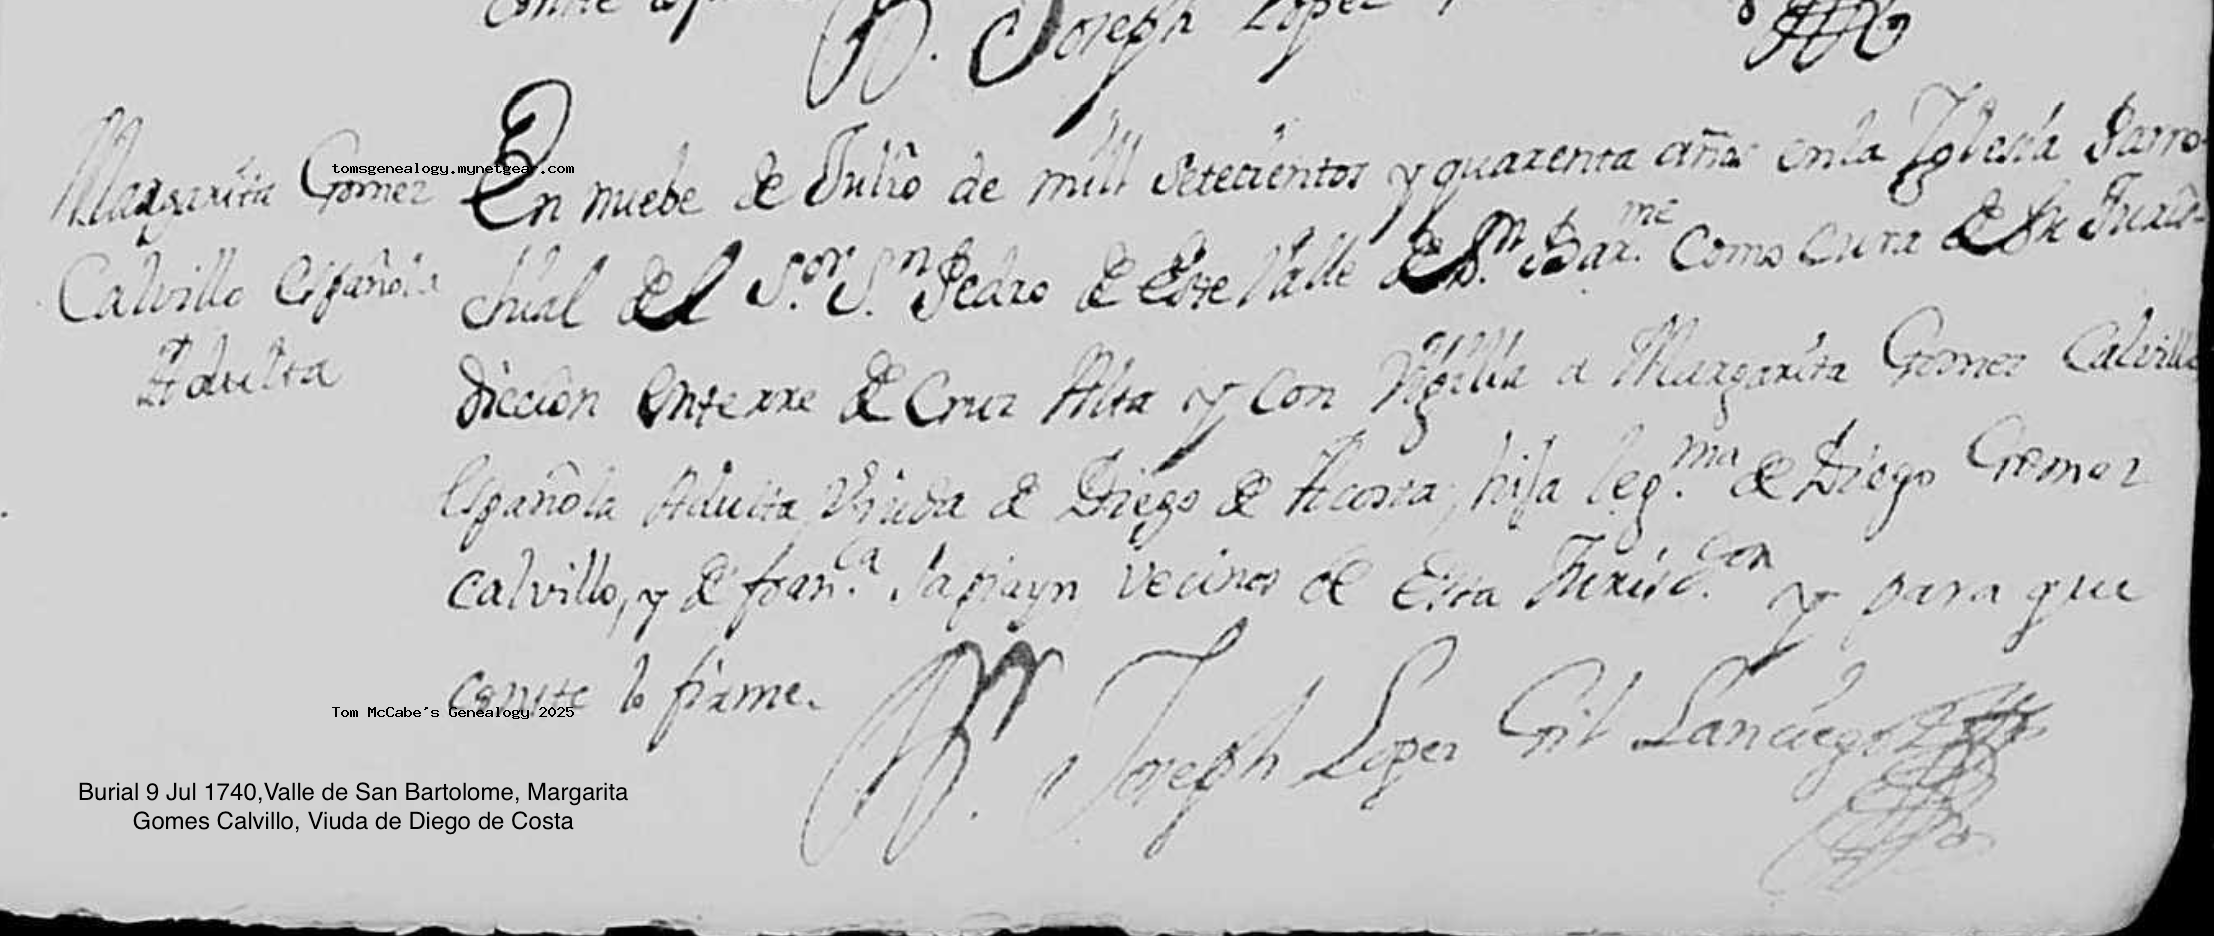 Conste lo
Br. Joseph Lopez
Margarita Gomez
Calvillo Española
Adulta
tomsgenealogy.mynetgear.com
En nuebe de Julio de mill Setecientos y quarenta años en la Iglesia Parro-
chial de el S.or S.n Pedro de este Valle de S.n Bar.me Como Cura de Su Juris-
diccion enterre de Cruz Alta y con Vigilia a Margarita Gomez Calvillo
Española Adulta, Viuda de Diego de Acosta, hija leg.ma de Diego Gomez
Calvillo, y de fran.ca vecinos de Esta Jurisd.con y para que
conste lo firme.
Br. Joseph Lopez Gil Lanciego
Tom McCabe's Genealogy 2025
Burial 9 Jul 1740,Valle de San Bartolome, Margarita
Gomes Calvillo, Viuda de Diego de Costa